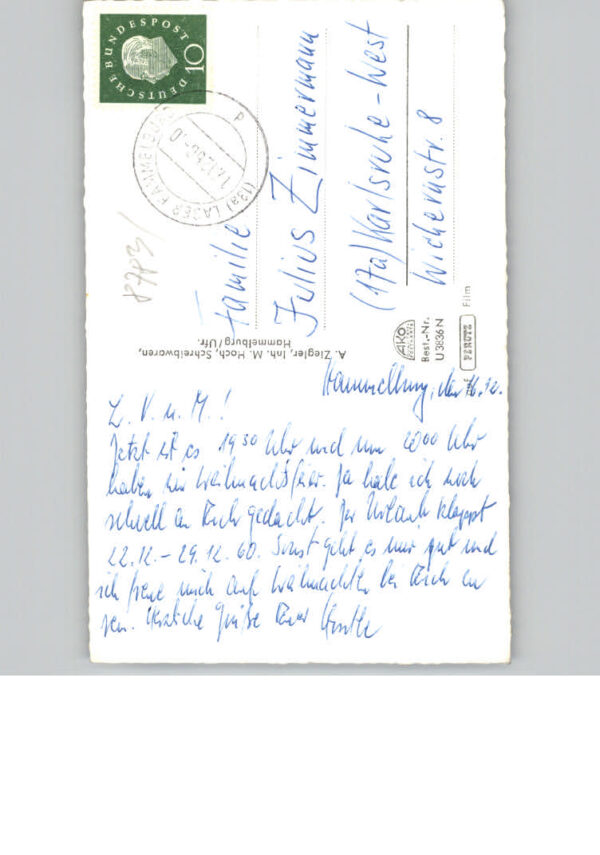 DEUTSCHE BUNDESPOST
10
(13a) LAGER HAMMELBURG
Familie
Julius Zimmermann
(17a) Karlsruhe-West
Wichernstr. 8
8783/
A. Ziegler, Inh. M. Hoch, Schreibwaren,
Hammelburg/Ufr.
AKO
Best.-Nr.
U 3836 N
PERUTZ
Film
Hammelburg, den 16.12.
L. V. u. M.!
Jetzt ist es 19 30 Uhr und um 20 00 Uhr
haben wir Weihnachtsfeier. Da habe ich noch
schnell an Euch gedacht. Der Urlaub klappt
22.12. - 29.12. 60. Sonst geht es mir gut und
ich freue mich auf Weihnachten bei Euch zu
sein. Herzliche Grüße Euer